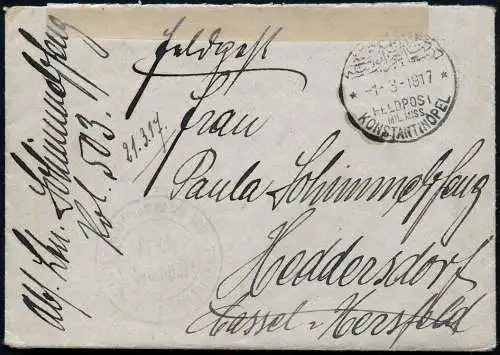 Feldpost
-1-3-1917
FELDPOST
MIL.MISS.
KONSTANTINOPEL
Abs. Ltn. Schimmelpfeng
Kol. 503.
21.3.17.
Frau
Paula Schimmelpfeng
Heddersdorf
Cassel - Hersfeld